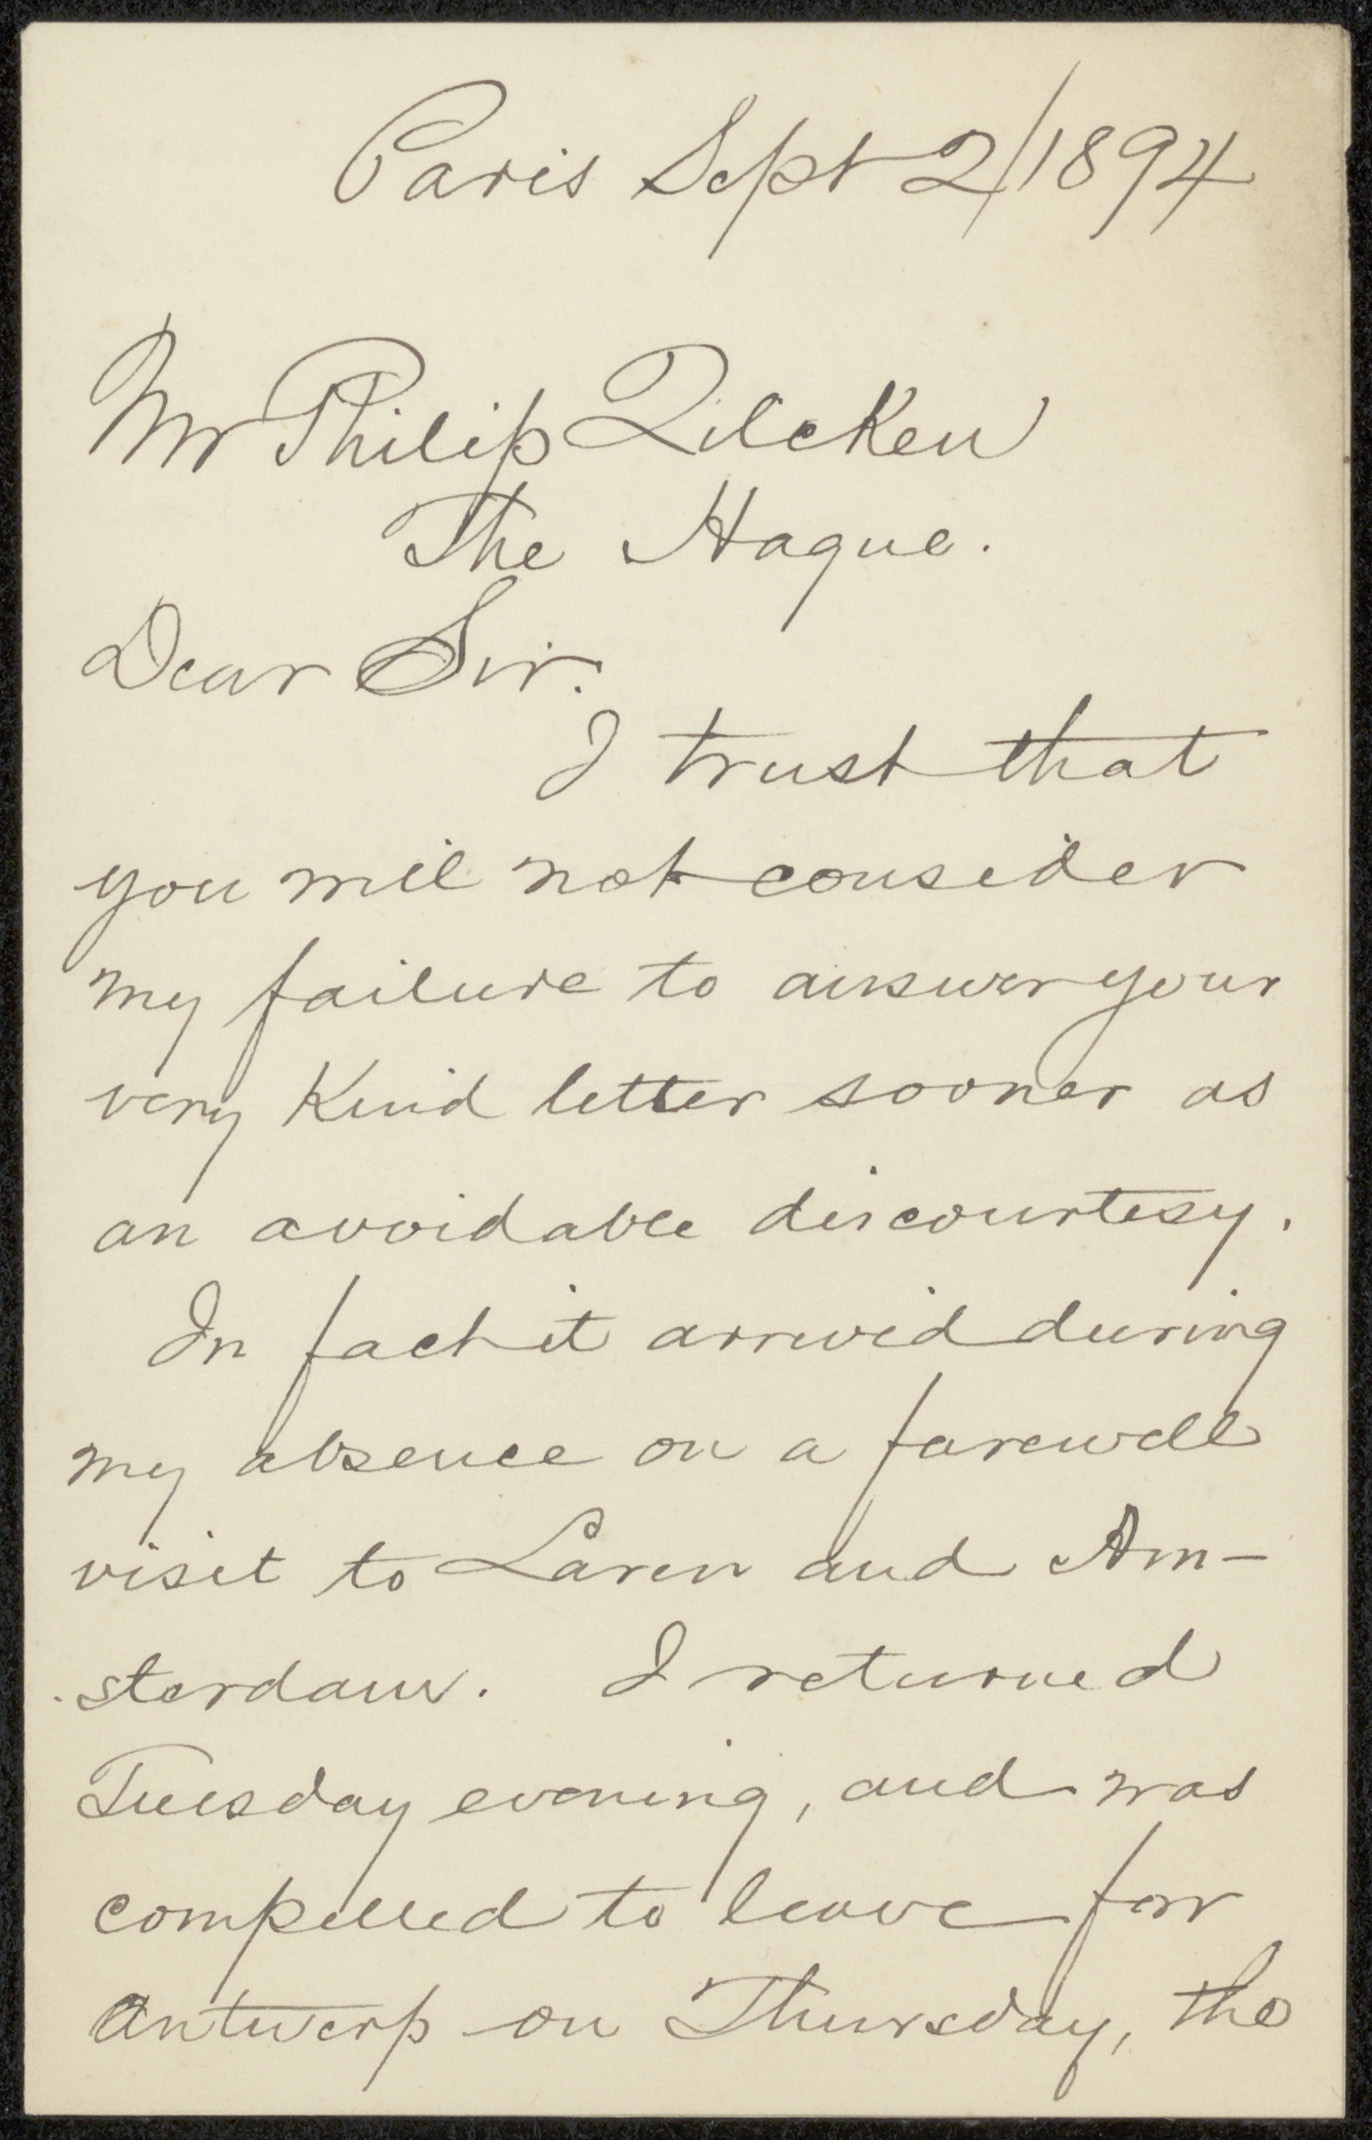 Paris Sept 2/1894
Mr Philip Zilcken
The Hague.
Dear Sir.
I trust that
you will not consider
my failure to answer your
very kind letter sooner as
an avoidable discourtesy.
In fact it arrived during
my absence on a farewell
visit to Laren and Am-
sterdam. I returned
Tuesday evening, and was
compelled to leave for
Antwerp on Thursday, the